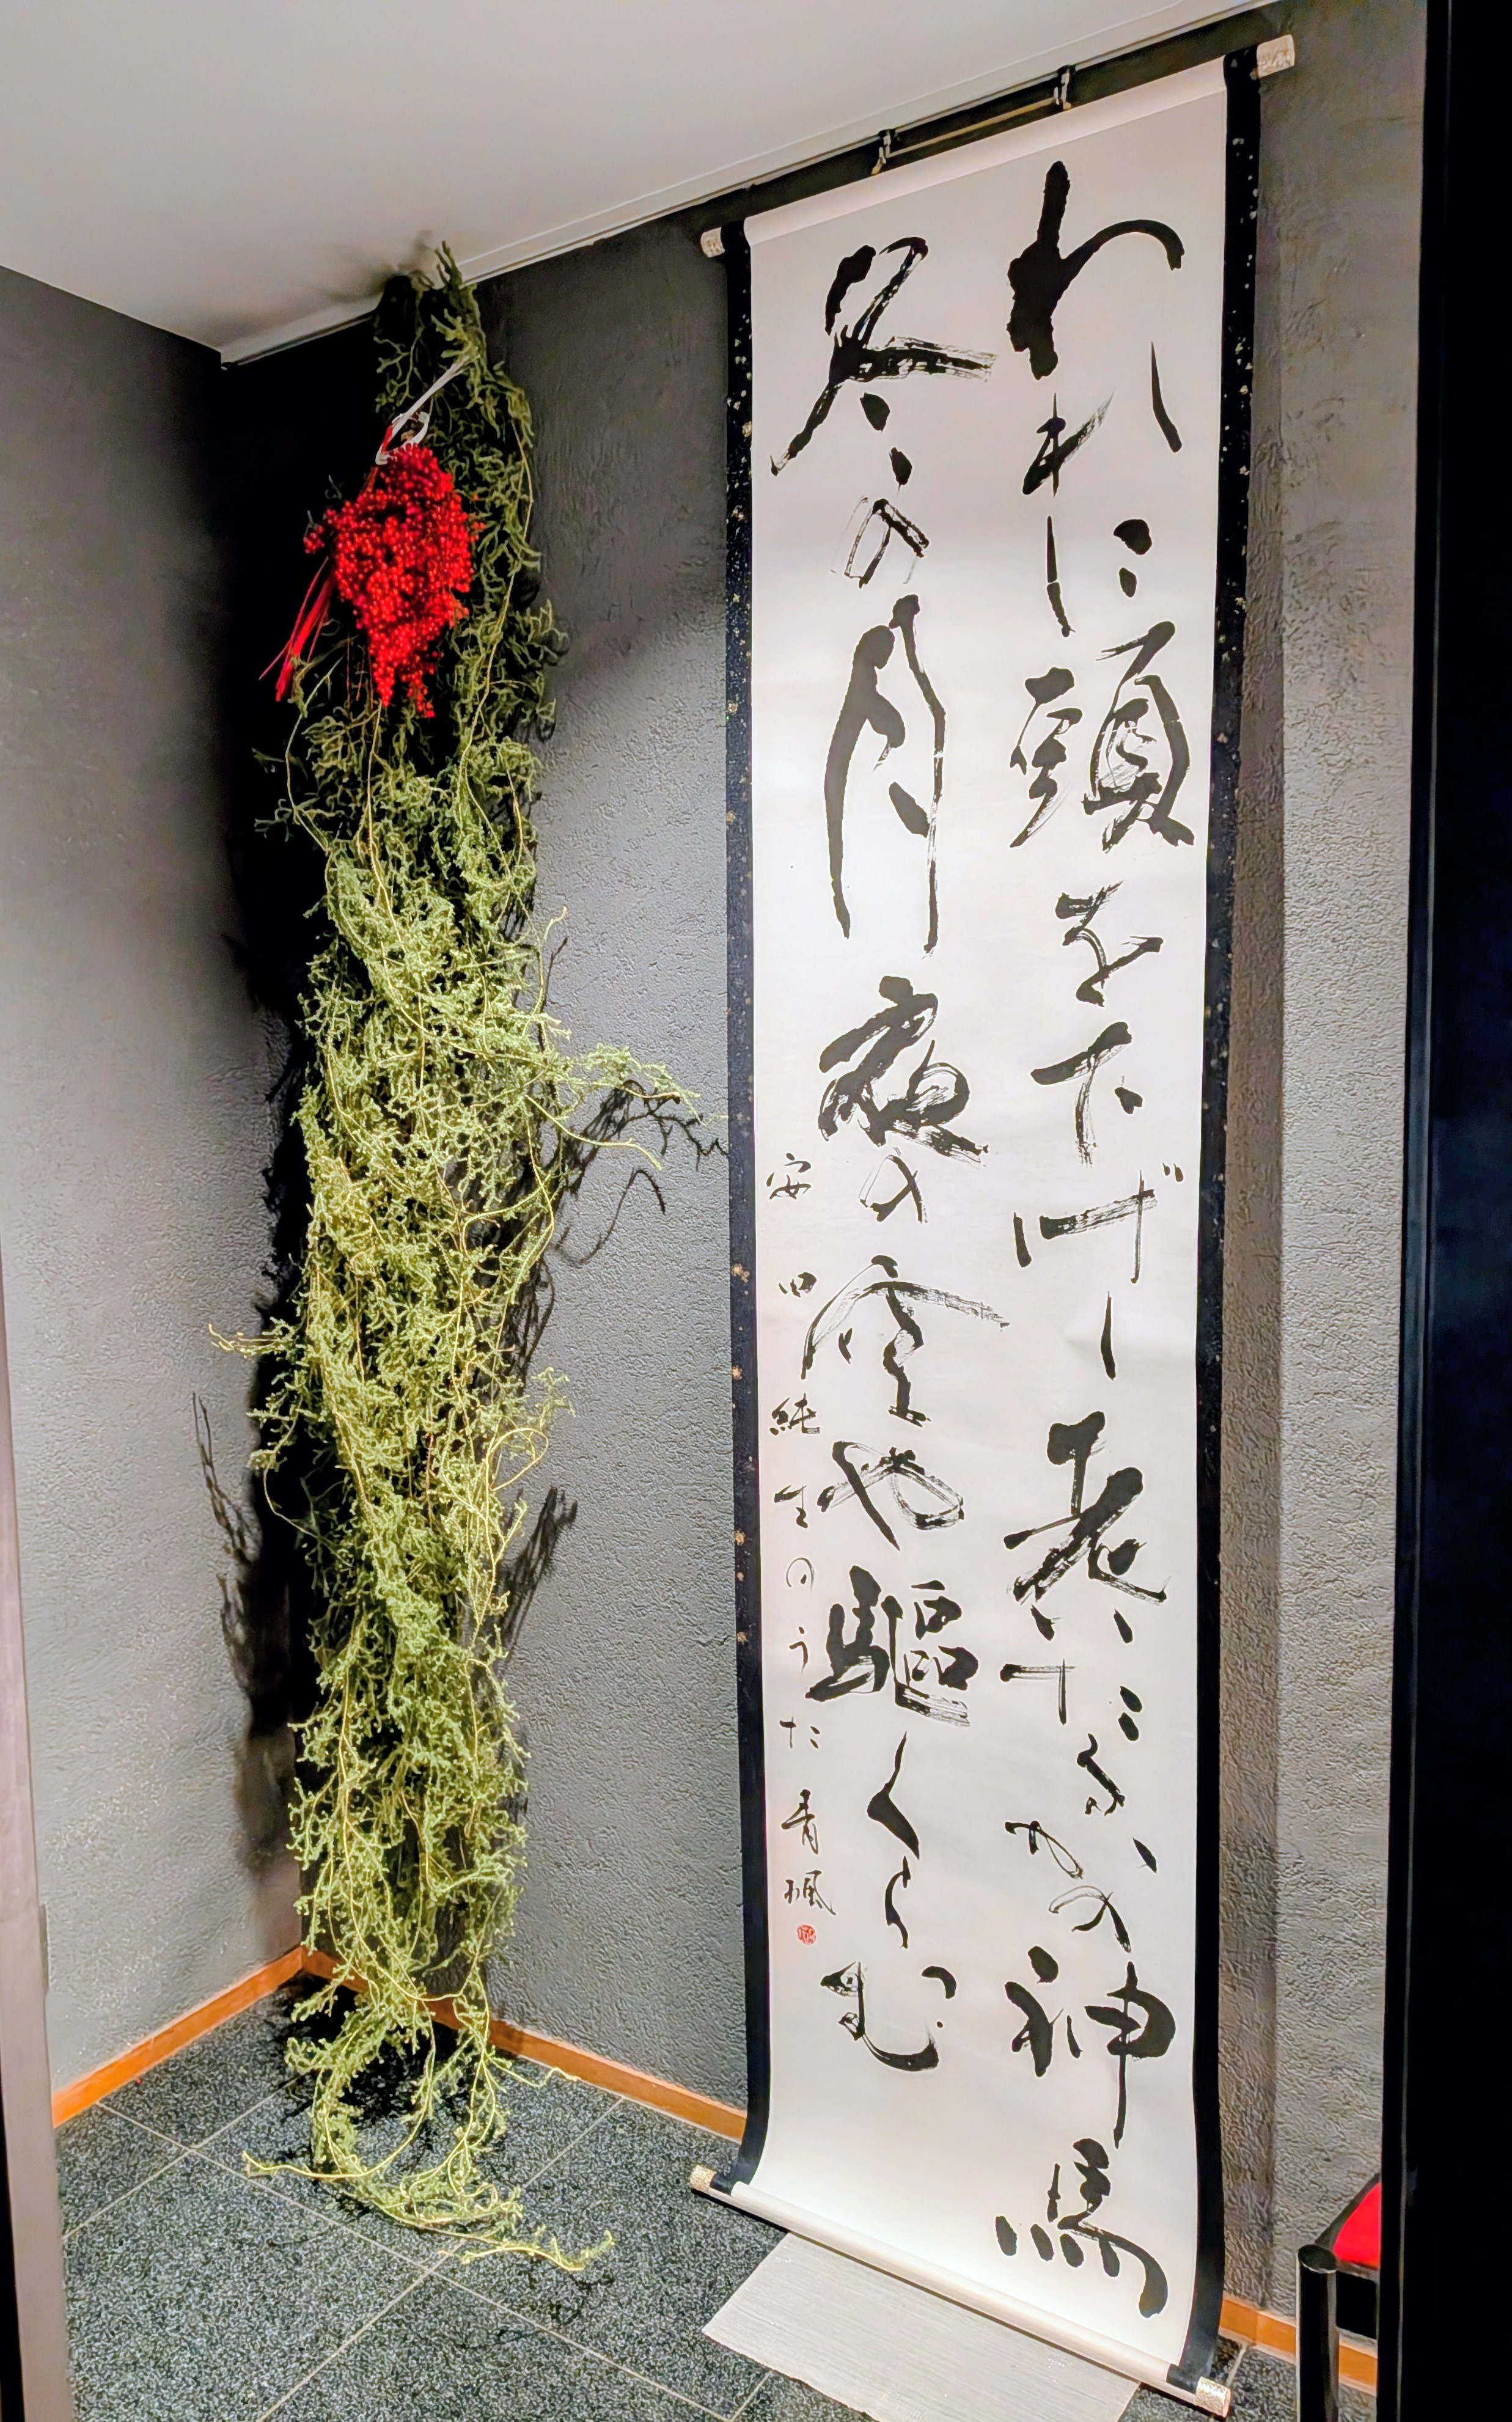 われに頭を下げし老いたるかの神馬
冬の月夜の空や驅くらむ
安田純生のうた 青